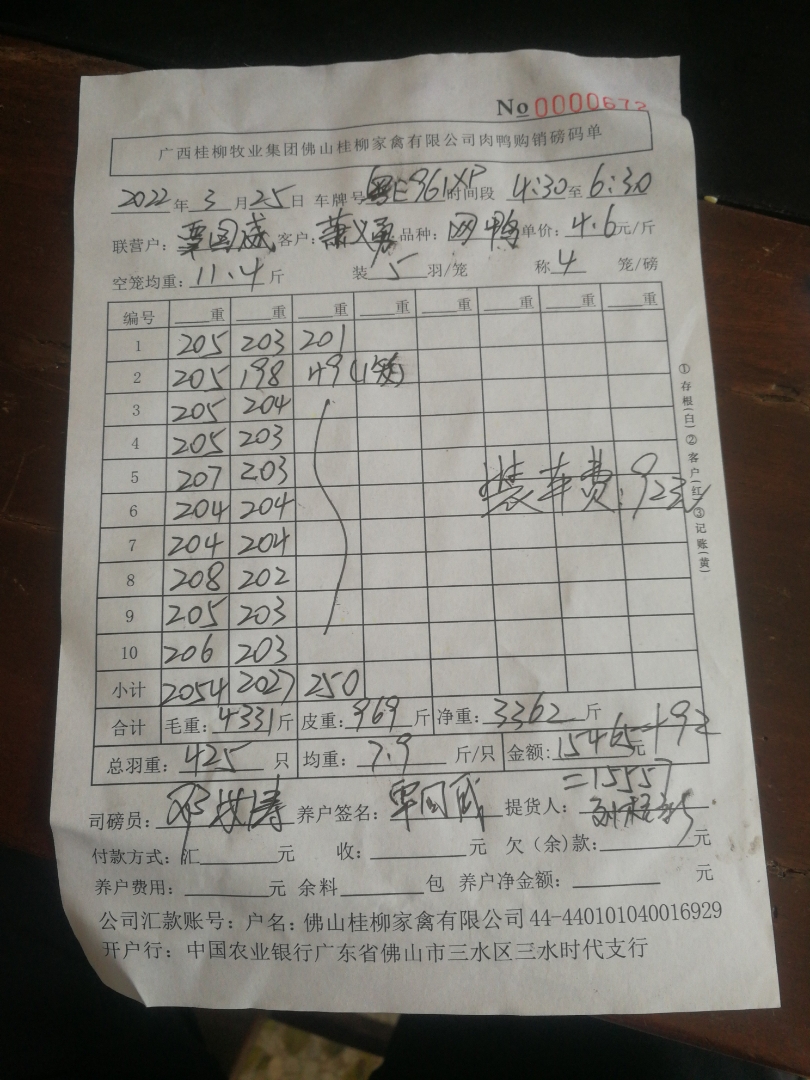 No 0000672
广西桂柳牧业集团佛山桂柳家禽有限公司肉鸭购销磅码单
2022年3月25日 车牌号 粤E961XP 时间段 4:30至6:30
联营户:覃国威 客户:萧义勇 品种: 鸭 单价:4.6元/斤
空笼均重:11.4斤 装5羽/笼 称4笼/磅
编号 重 重 重 重 重 重 重 重
1 205 203 201
2 205 198 49
3 205 204
4 205 203
5 207 203
6 204 204
7 204 204
8 208 202
9 205 203
10 206 203
装车费:92元
小计 2054 2027 250
合计 毛重:4331斤 皮重:969斤 净重:3362斤
总羽重:425只 均重:7.9斤/只 金额:15465元+92
=15557
司磅员: 养户签名:覃国威 提货人:
付款方式:汇 元 收: 元 欠(余)款: 元
养户费用: 元 余料 包 养户净金额: 元
公司汇款账号:户名:佛山桂柳家禽有限公司44-440101040016929
开户行:中国农业银行广东省佛山市三水区三水时代支行
①存根(白)②客户(红)③记账(黄)